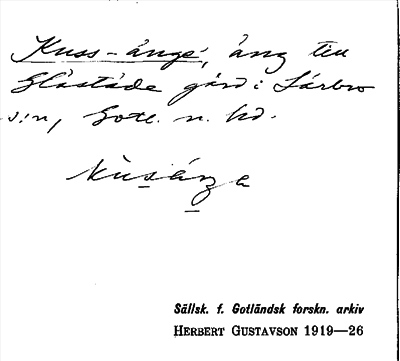 Kuss-änge, äng till
Glästäde gård i Lärbro
s:n, Gotl. n. hd.
kusánga
Sällsk. f. Gotländsk forskn. arkiv
HERBERT GUSTAVSON 1919—26